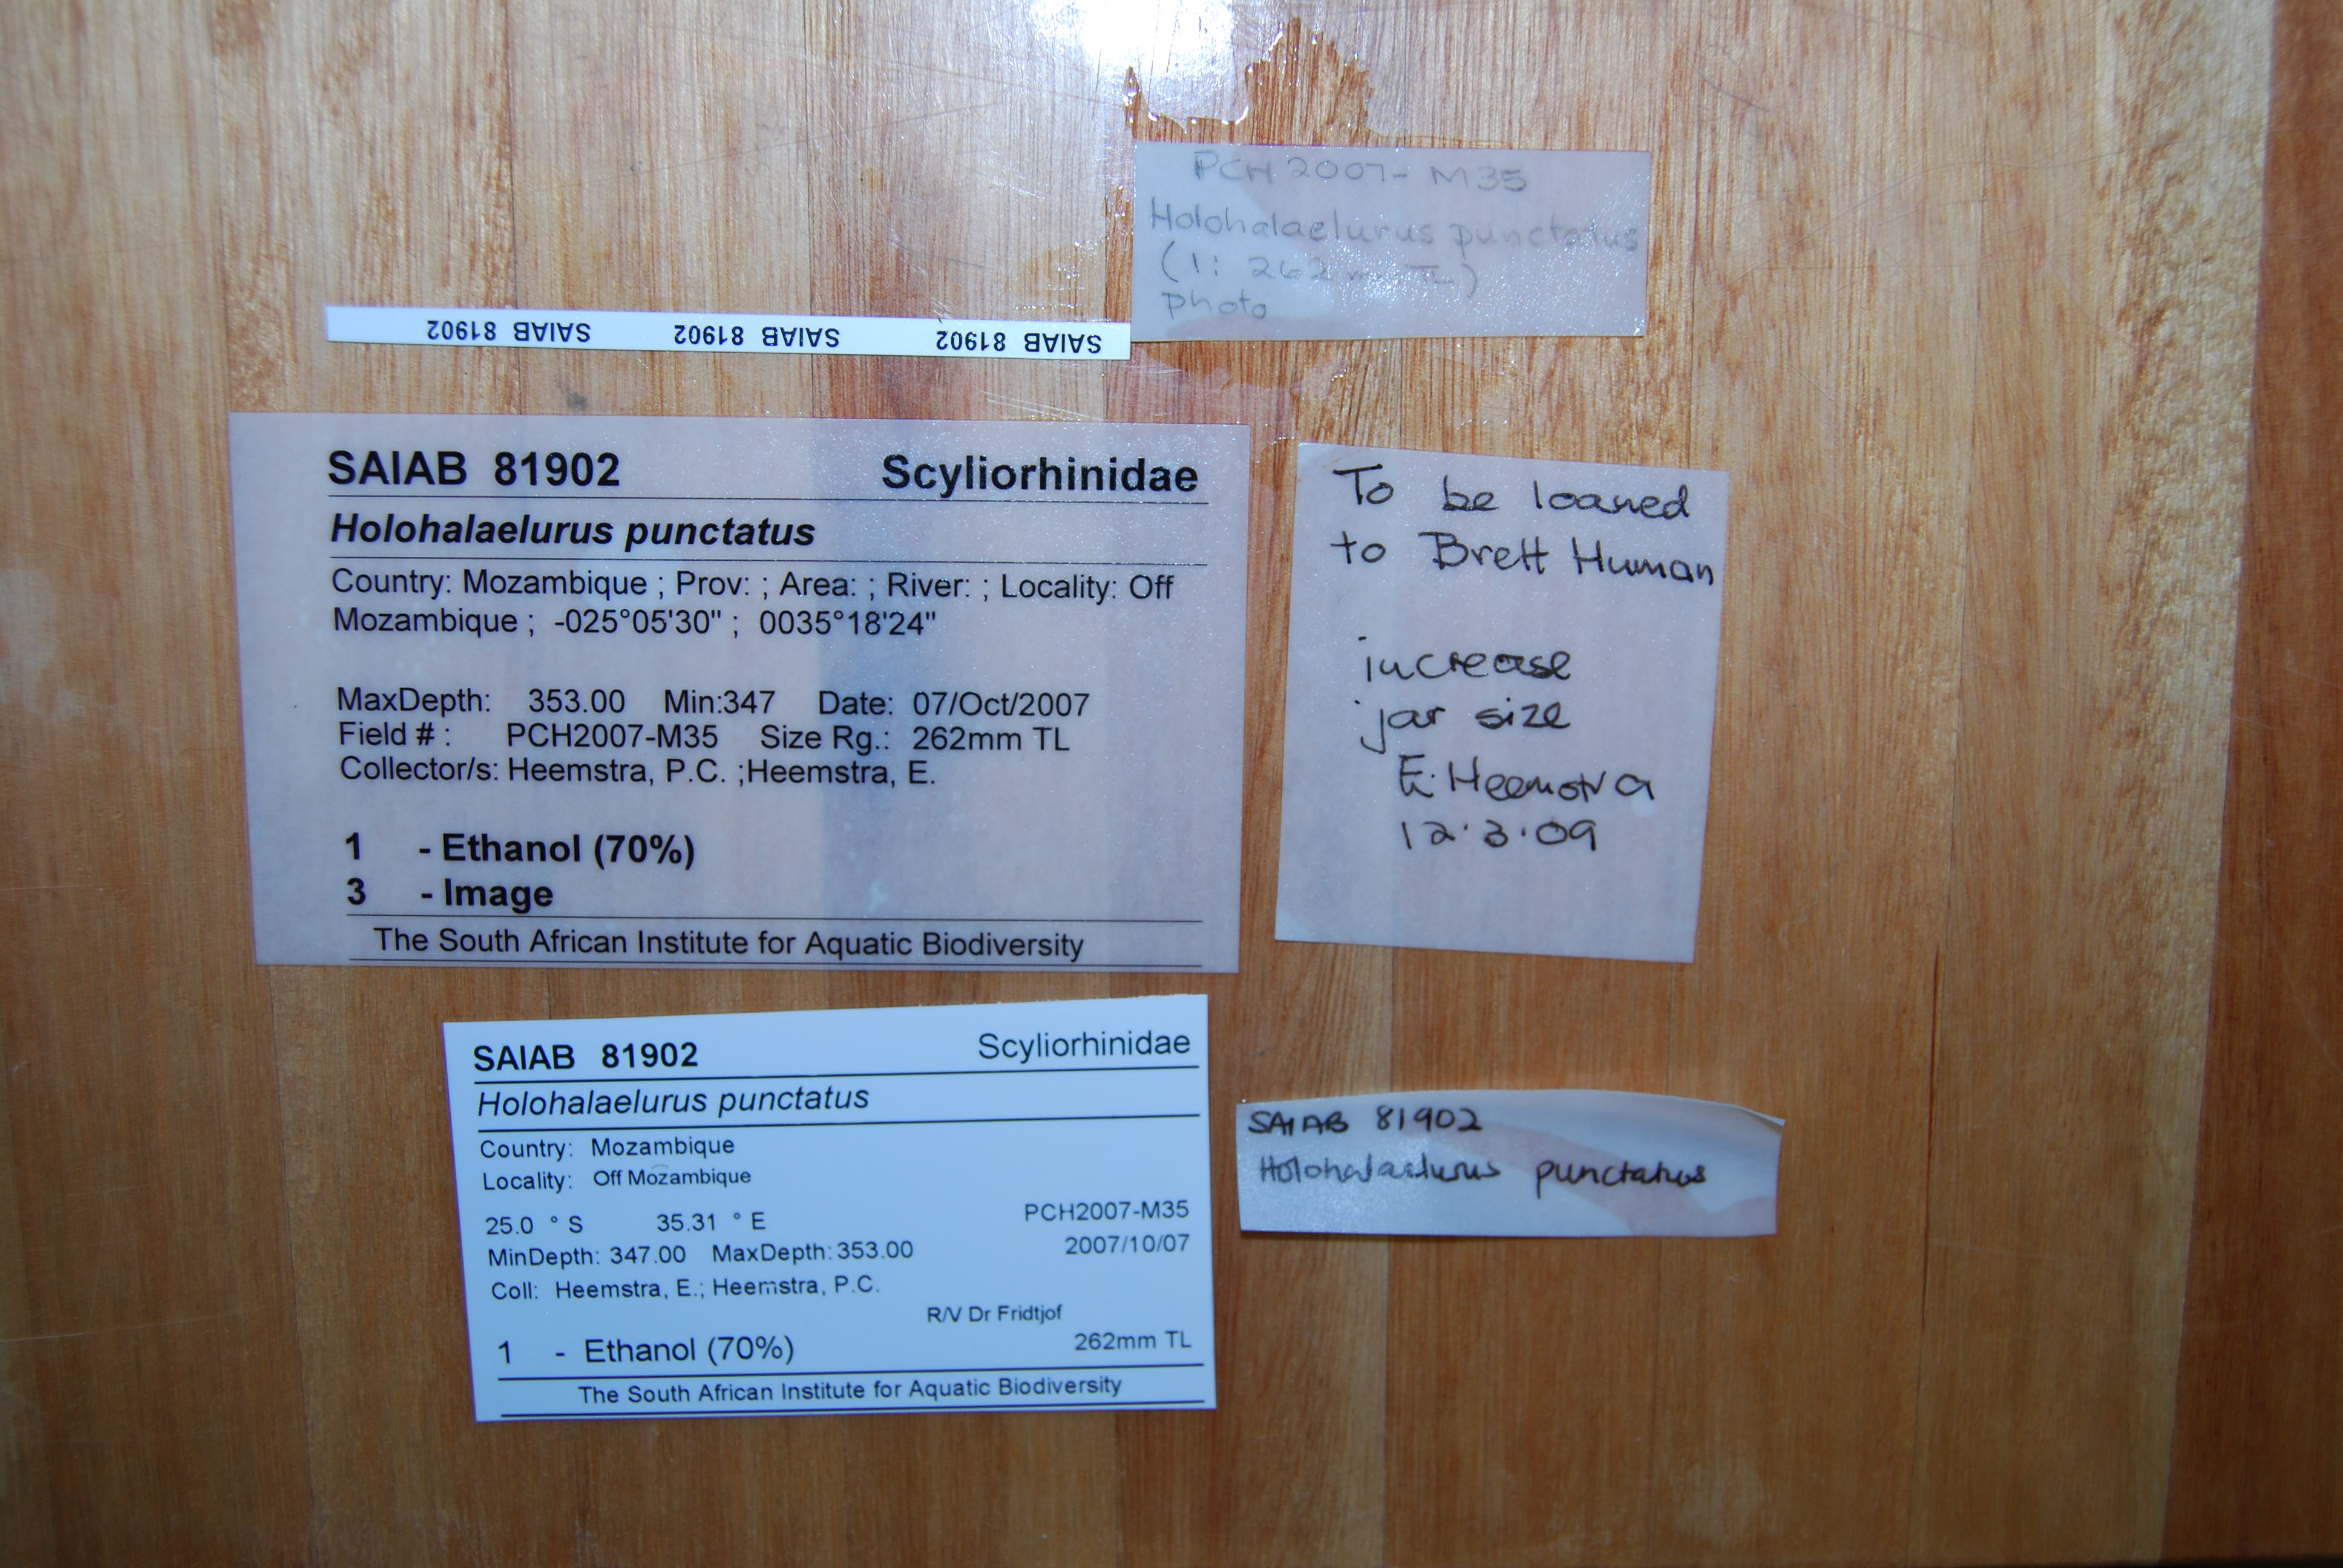 PCH 2007- M35
Holohalaelurus punctatus
(1: 262 TL)
photo
SAIAB 81902 SAIAB 81902 SAIAB 81902
SAIAB 81902 Scyliorhinidae
Holohalaelurus punctatus
Country: Mozambique ; Prov: ; Area: ; River: ; Locality: Off
Mozambique ; -025°05'30" ; 0035°18'24"
MaxDepth: 353.00 Min:347 Date: 07/Oct/2007
Field # : PCH2007-M35 Size Rg.: 262mm TL
Collector/s: Heemstra, P.C. ;Heemstra, E.
1 - Ethanol (70%)
3 - Image
The South African Institute for Aquatic Biodiversity
To be loaned
to Brett Human
increase
jar size
E. Heemstra
12.3.09
SAIAB 81902 Scyliorhinidae
Holohalaelurus punctatus
Country: Mozambique
Locality: Off Mozambique
25.0 ° S 35.31 ° E PCH2007-M35
MinDepth: 347.00 MaxDepth: 353.00 2007/10/07
Coll: Heemstra, E.; Heemstra, P.C.
R/V Dr Fridtjof
1 - Ethanol (70%) 262mm TL
The South African Institute for Aquatic Biodiversity
SAIAB 81902
Holohalaelurus punctatus